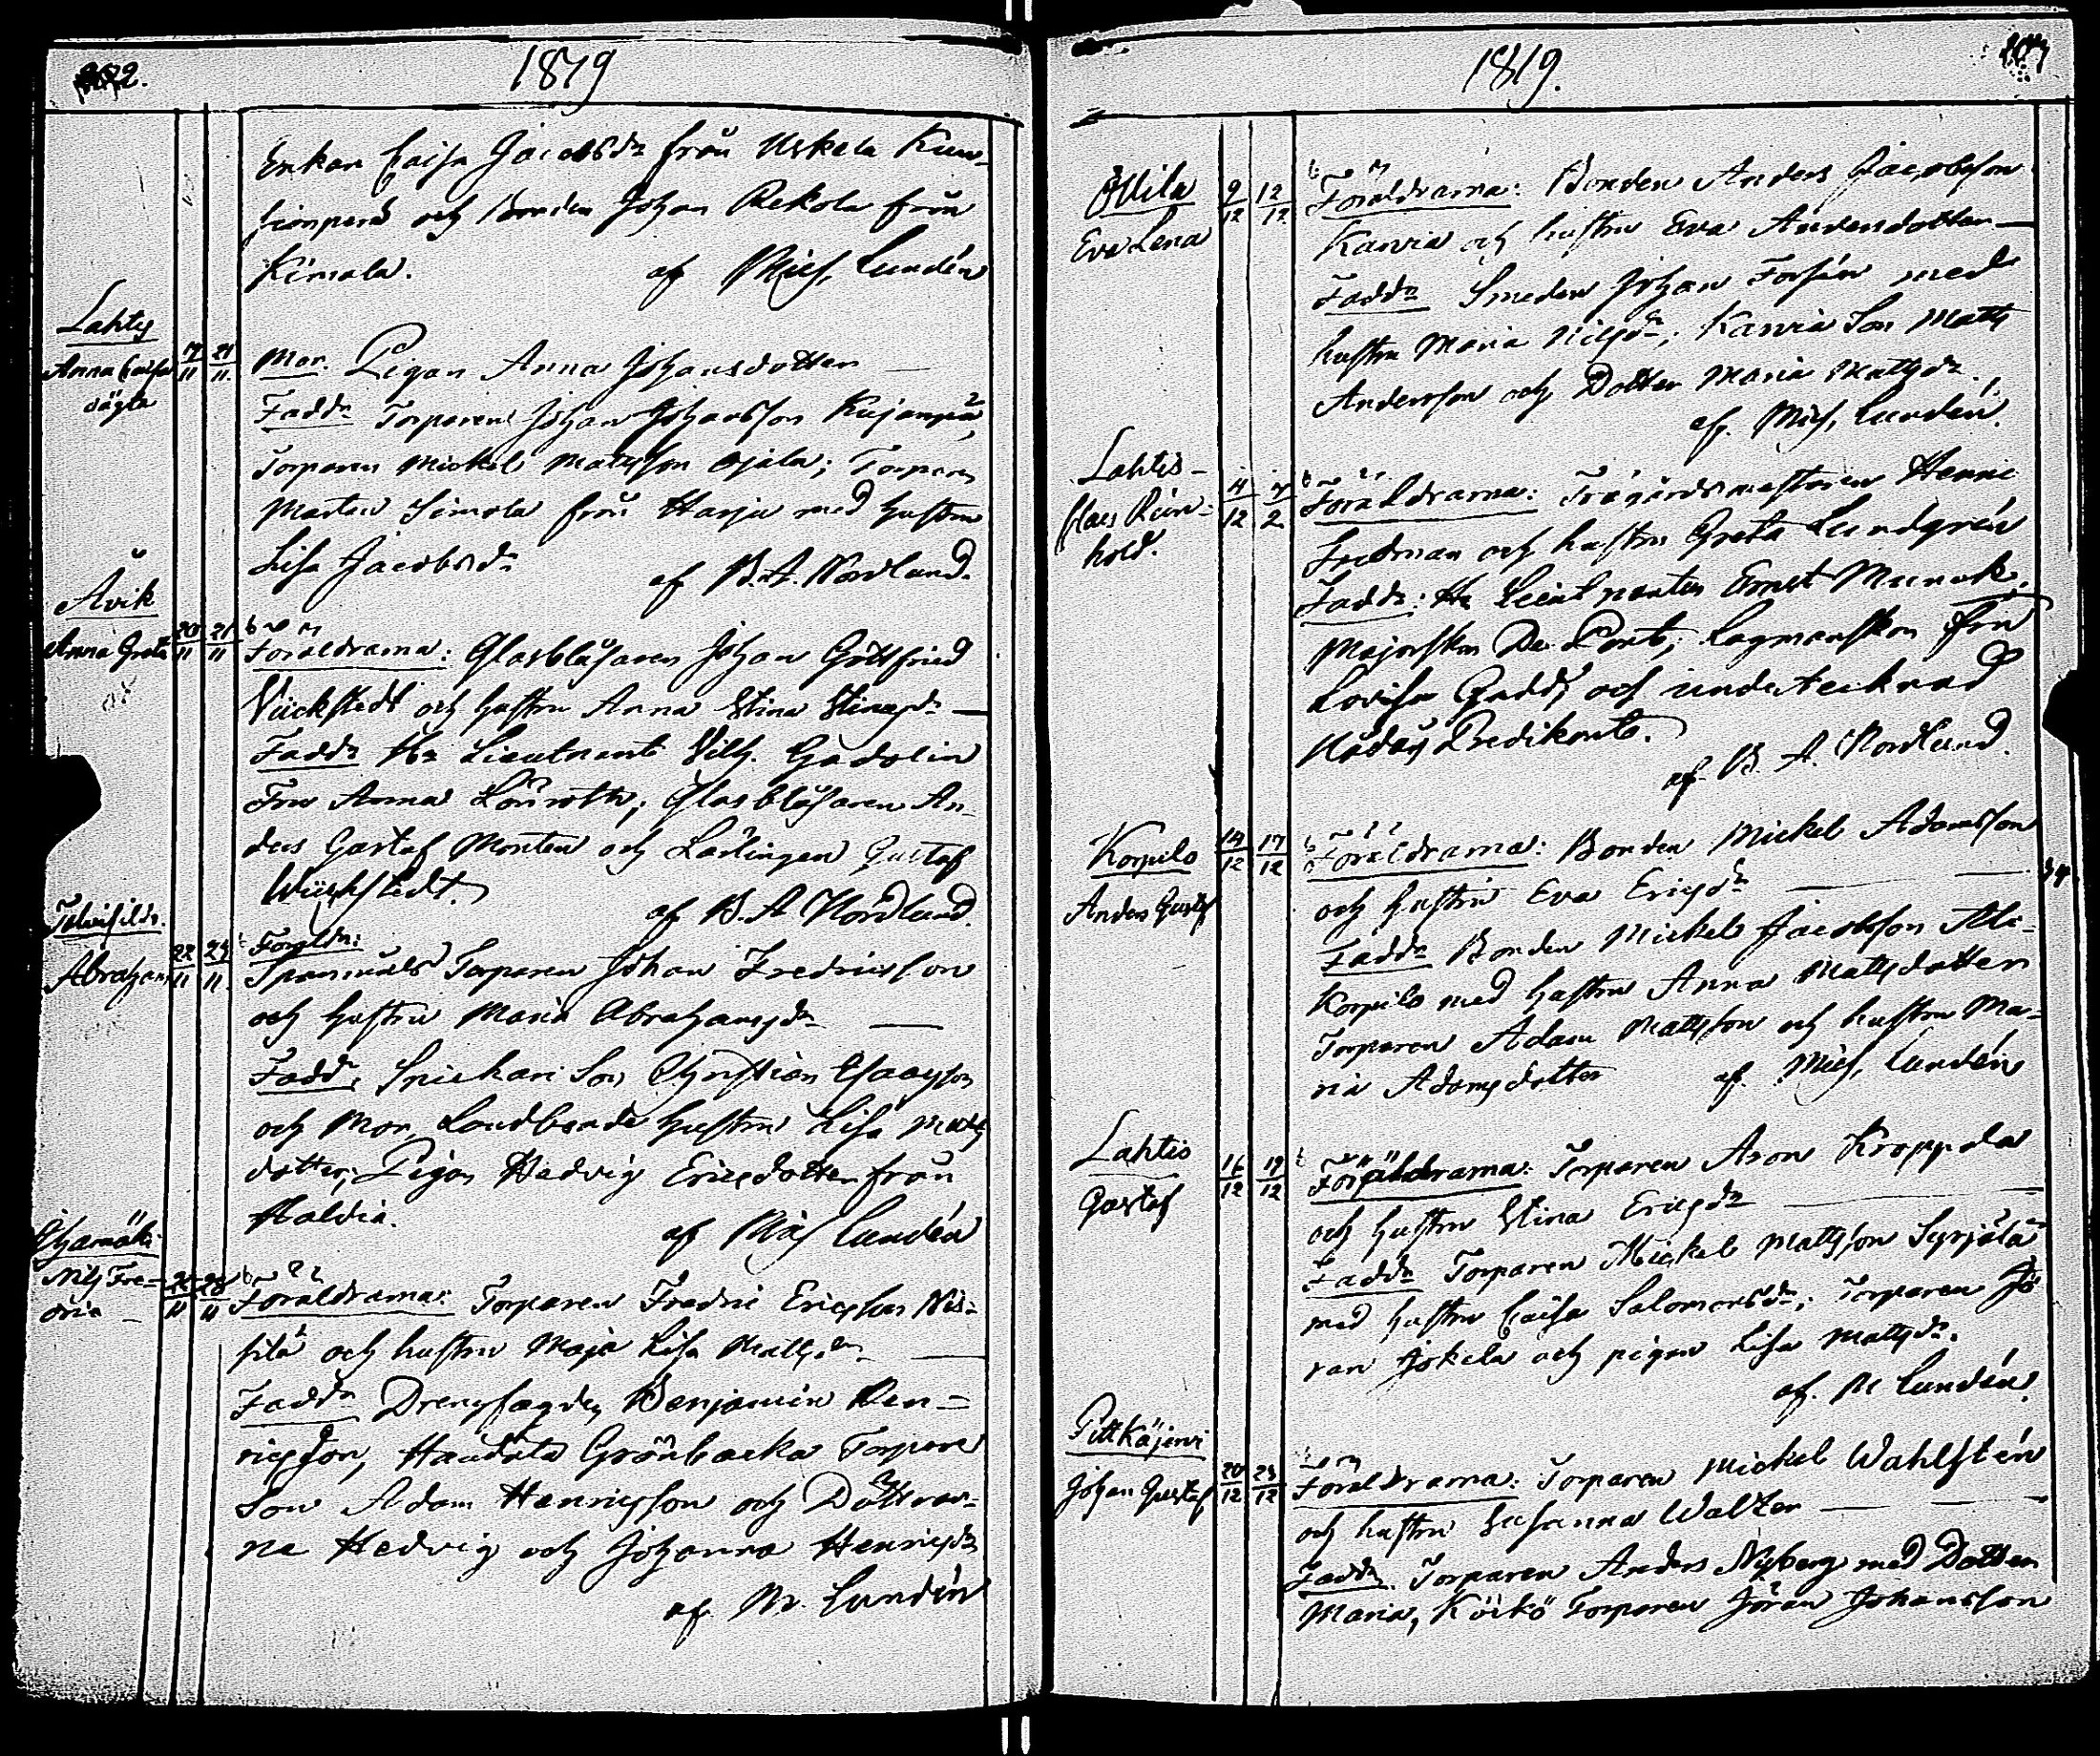 1819
Enkan Caisa Jacobsdr från Uskela Kun-
och Bonden Johan Rekola från
Kimola. af Mich. Lundén
Lahtis
Anna Caisa
oägta
17/11 21/11
Mor. Pigan Anna Johansdotter
Faddr Torparen Johan Johansson Kujanpä,
Torparen Mickel Mattsson Ojala; Torparen
Marten Simola från Harju med hustru
Lisa Jacobsdr af B.A. Nordlund.
Åvik
Anna Greta
20/11 21/11
Föräldrarna: Glasblåsaren Johan Gottfried
Vückstedt och hustru Anna Stina
Faddr Hr Lieutnant Vilh. Gadolin
Fru Anna Lönroth; Glasblåsaren An-
ders Gustaf Monten och Lärlingen Gustaf
Wückstedt. af B.A Nordlund.
Abraham
22/11 24/11
Föräldr:
Torparen Johan Fredricsson
och hustru Maria Abrahamsdr
Faddr, Son Christian Isaacsson
och Mor, Landbonde hustru Lisa Matts
dotter; Pigan Hedvig Ericsdotter från
Haldia. af Mich Lundén
Nils Fre-
dric
26/11 28/11
Föräldrarna: Torparen Fredric Ericsson Nis-
silä och hustru Maja Lisa Mattsdr
Faddr Drengfogden Benjamin Hen-
ricsson, Grönbacka Torpare
Son Adam Henricsson och Döttrar-
na Hedvig och Johanna Henricsdr
af M. Lundén
1819.
Ottila
Eva Lena
9/12 12/12
Föräldrarna: Bonden Anders Jacobsson
Karvia och hustru Eva Andersdotter
Faddr Smeden Johan Forsén med
hustru Maria Nilsdr; Karvia Son Matts
Andersson och Dotter Maria Mattsdr.
af. Mich. Lundén.
Lahtis
Claes Rein-
hold.
Föräldrarna: Trägårdsmästaren Henric
Fredman och hustru Greta Lundgrén
Faddr: Hr Lieutnanten Ernst Munck,
Majorskan De Pont; Lagmanskan Fru
Lovisa Gadd, och undertecknad
Nådårs Predikant.
af B. A. Nordlund.
Korpilo
Anders Gustaf
14/12 17/12
Föräldrarna: Bonden Mickel Adamsson
och hustru Eva Ericsdr
Faddr Bonden Mickel Jacobsson Ali-
Korpilo med hustru Anna Mattsdotter
Torparen Adam Mattsson och hustru Ma-
ria Adamsdotter af. Mich. Lundén
Lahtis
Gustaf
16/12 19/12
Föräldrarna: Torparen Aron Kroppola
och hustru Stina Ericsdr
Faddr Torparen Mickel Mattsson Syrjälä
med hustru Caisa Salomonsdr; Torparen Jö
ran Jokela och pigan Lisa Mattsdr.
af. M Lundén.
Pitkäjervi
Johan Gustaf
20/12 23/12
Föräldrarna: Torparen Mickel Wahlstén
och hustru Susanna Walter
Faddr. Torparen Anders Nyberg med Dotter
Maria, Köikö Torparen Jöran Johansson